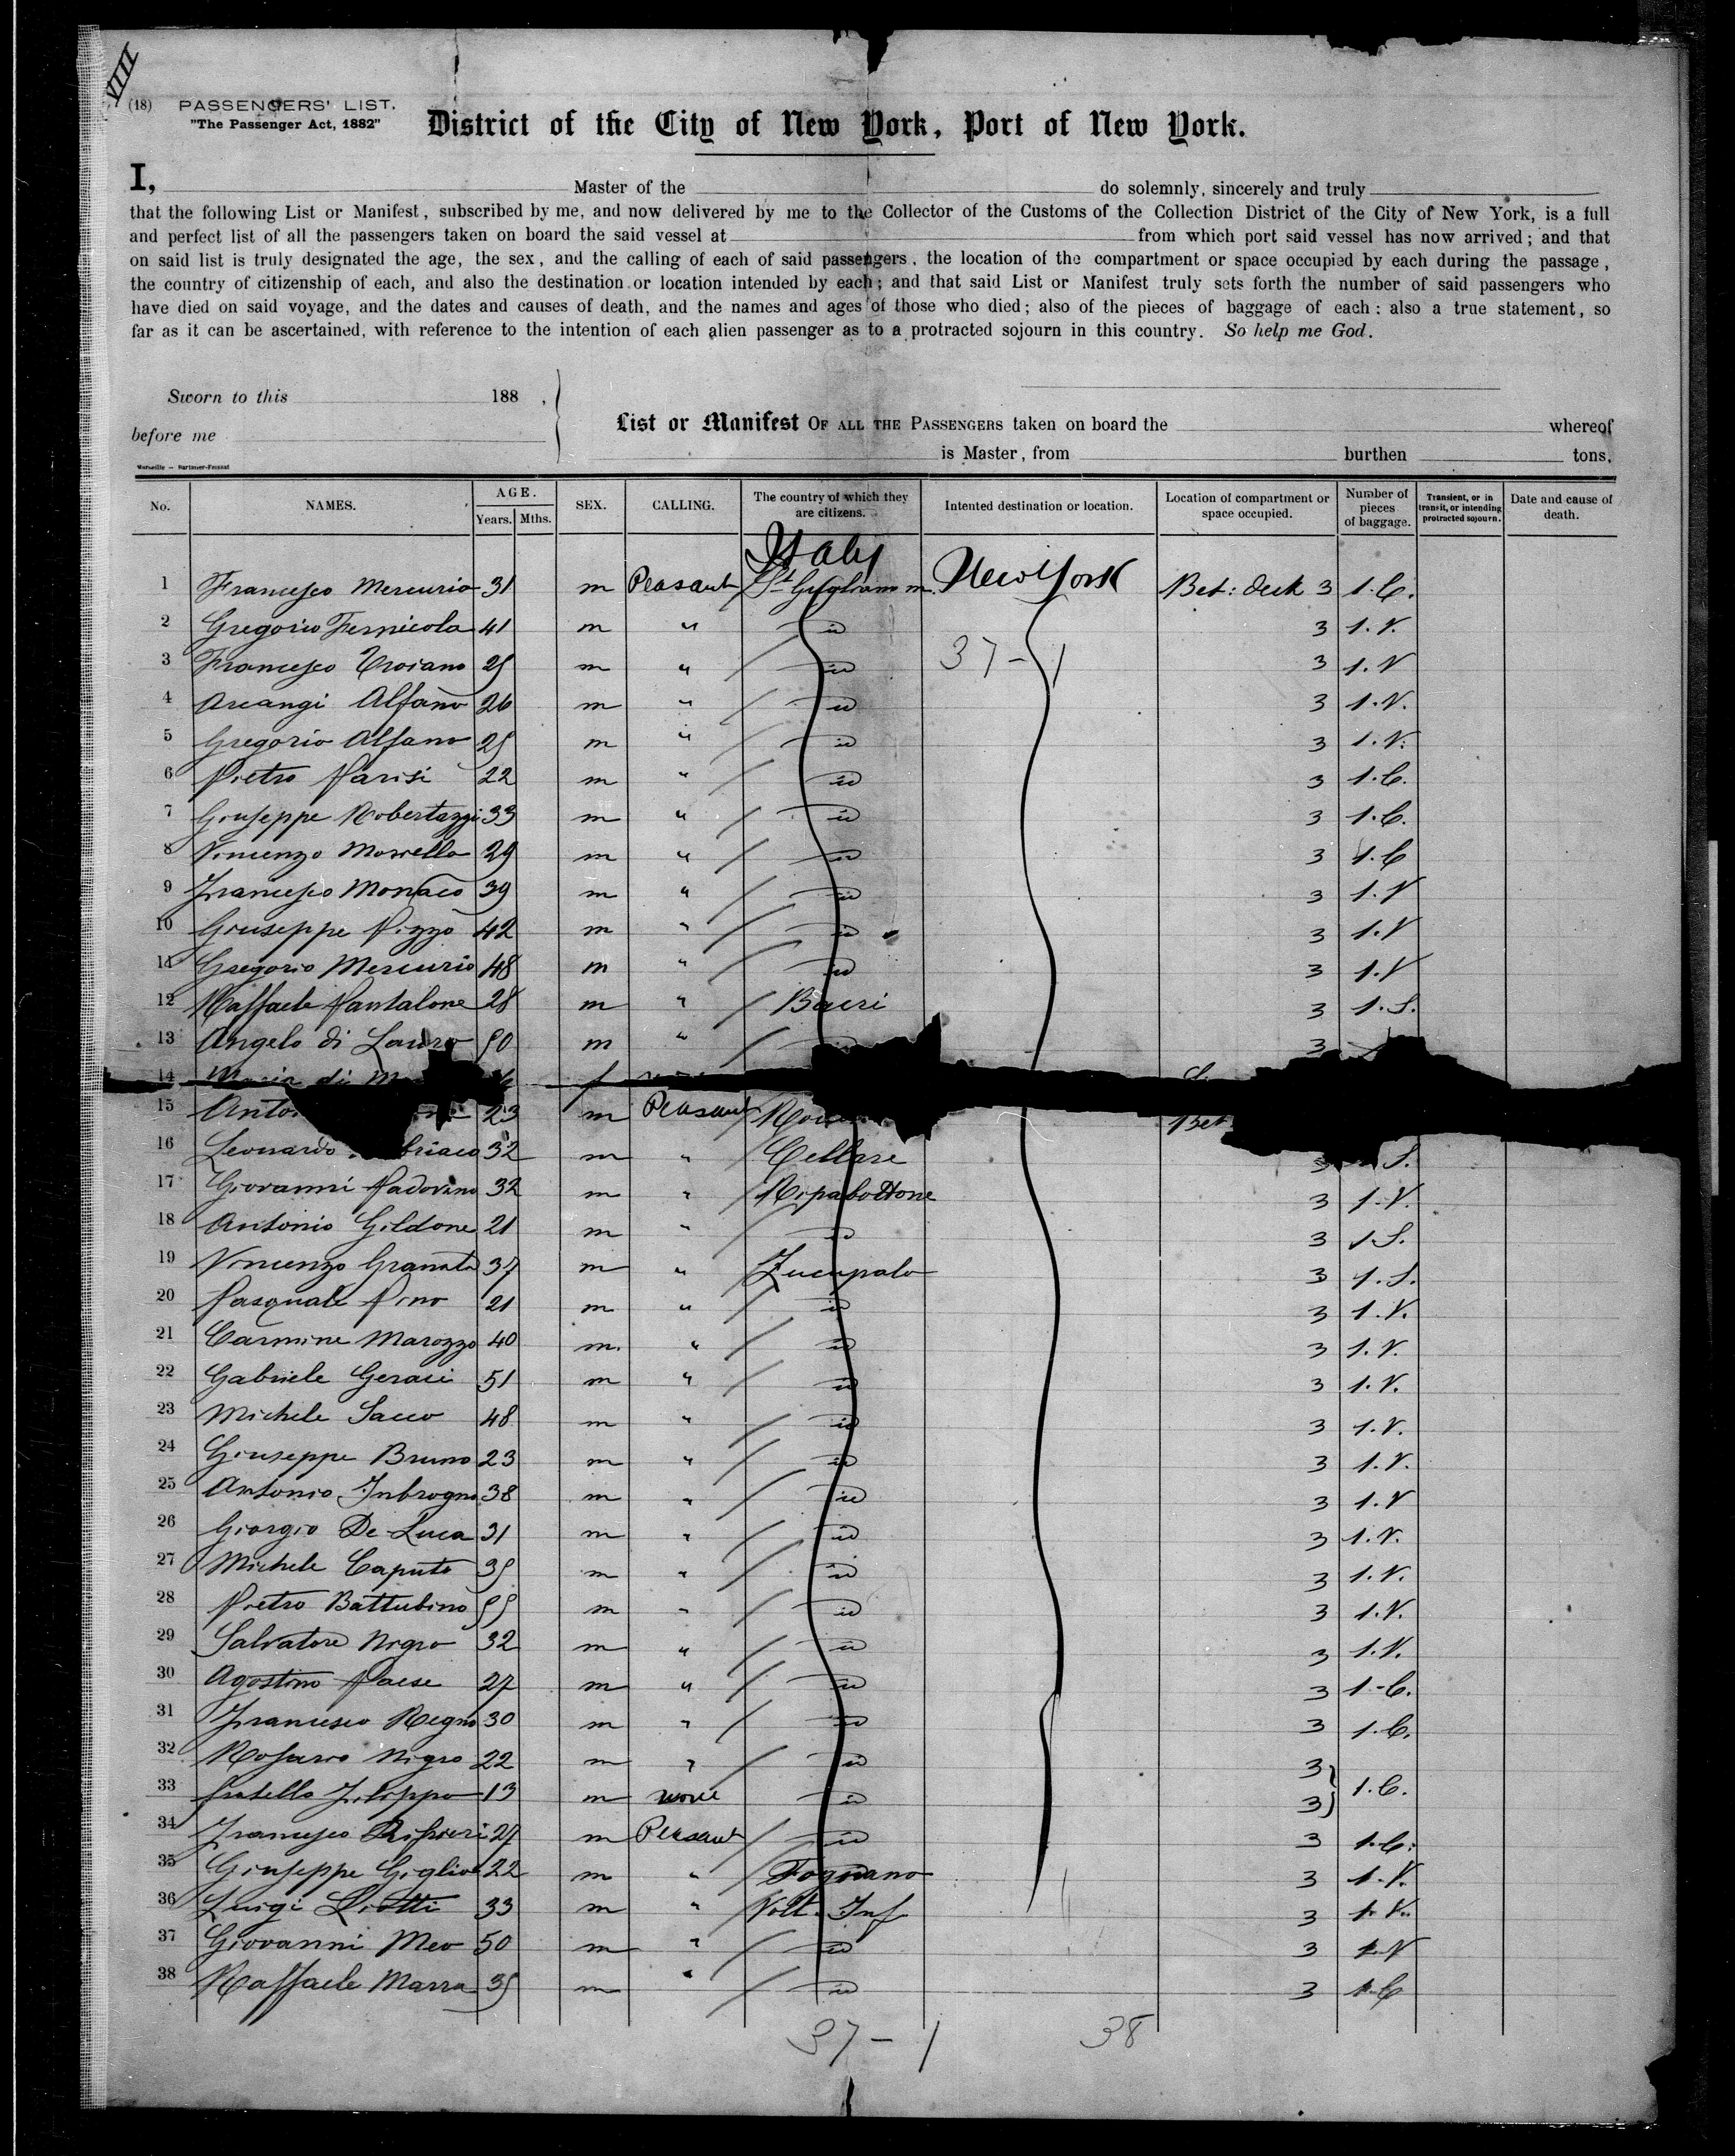 VIII
(18) PASSENGERS' LIST.
"The Passenger Act, 1882"
District of the City of New York, Port of New York.
I, Master of the do solemnly, sincerely and truly
that the following List or Manifest, subscribed by me, and now delivered by me to the Collector of the Customs of the Collection District of the City of New York, is a full
and perfect list of all the passengers taken on board the said vessel at from which port said vessel has now arrived; and that
on said list is truly designated the age, the sex, and the calling of each of said passengers, the location of the compartment or space occupied by each during the passage,
the country of citizenship of each, and also the destination or location intended by each; and that said List or Manifest truly sets forth the number of said passengers who
have died on said voyage, and the dates and causes of death, and the names and ages of those who died; also of the pieces of baggage of each: also a true statement, so
far as it can be ascertained, with reference to the intention of each alien passenger as to a protracted sojourn in this country. So help me God.
Sworn to this 188 ,
before me
List or Manifest OF ALL THE PASSENGERS taken on board the whereof
is Master, from burthen tons.
Marseille
No. NAMES. AGE. Years. Mths. SEX. CALLING. The country of which they are citizens. Intented destination or location. Location of compartment or space occupied. Number of pieces of baggage. Transient, or in transit, or intending protracted sojourn. Date and cause of death.
Italy
1 Francesco Mercurio 31 m Peasant New York Bet: deck 3 1.C.
2 Gregorio Fernicola 41 m " id 3 1.V.
3 Francesco Troiano 25 m " id 37-1 3 1.V
4 Arcangi Alfano 26 m " id 3 1.V.
5 Gregorio Alfano 25 m " id 3 1.V.
6 Pietro Parisi 22 m " id 3 1.C.
7 Giuseppe Robertazzi 33 m " id 3 1.C.
8 Vincenzo Morrello 29 m " id 3 1.C
9 Francesco Monaco 39 m " id 3 1.V
10 Giuseppe Pizzo 42 m " id 3 1.V
11 Gregorio Mercurio 48 m " id 3 1.V
12 Raffaele Pantalone 28 m " 3 1.S.
13 Angelo di Lauro 50 m " 3
14 Maria di f
15 23 m Peasant Bet
16 Leonardo 32 m " Cellare S.
17 Giovanni Padovano 32 m " Ripabottone 3 1.V.
18 Antonio Gildone 21 m " id 3 1.S.
19 Vincenzo Granata 37 m " 3 1.S.
20 Pasquale Pino 21 m " id 3 1.V.
21 Carmine Marozzo 40 m. " id 3 1.V.
22 Gabriele Geraci 51 m " id 3 1.V.
23 Michele Sacco 48 m " id 3 1.V.
24 Giuseppe Bruno 23 m " id 3 1.V.
25 Antonio Inbrogno 38 m " id 3 1.V
26 Giorgio De Luca 31 m " id 3 1.V.
27 Michele Caputo 35 m " id 3 1.V.
28 Pietro Battubino 55 m " id 3 1.V.
29 Salvatore Nigro 32 m " id 3 1.V.
30 Agostino Paese 27 m " id 3 1-C.
31 Francesco Regno 30 m " id 3 1.C.
32 Rosario Nigro 22 m " id 3
33 fratello Filippo 13 m none id 3 1.C.
34 Francesco 27 m Peasant id 3 1.C.
35 Giuseppe Giglio 22 m " Fognano 3 1.V.
36 Luigi Liotti 33 m " Volt. Inf 3 1.V.
37 Giovanni Meo 50 m " id 3 1.V
38 Raffaele Marra 35 m " id 3 1.C
37-1 38